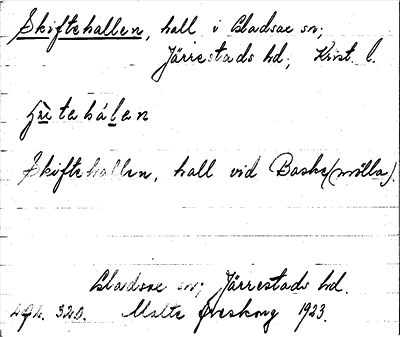 Skiftehallen, hall i Gladsax sn;
Järrestads hd; Krist. l.
Skiftehallen, hall vid Baske(mölla).
Gladsax sn; Järrestads hd.
320. Malte Areskoug 1923.